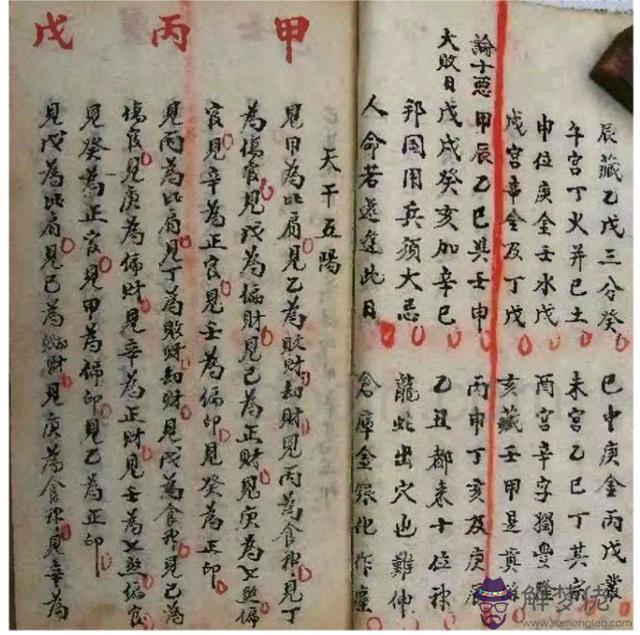 辰藏乙戊三分癸 巳中庚金丙戊叢
午宮丁火并巳土 未宮乙巳丁其宗
申位庚金壬水戊 酉宮辛字獨豐隆
戌宮辛金及丁戊 亥藏壬甲是真
論十惡 甲辰乙巳與壬申 丙申丁亥及庚辰
大敗日 戊戌癸亥加辛巳 乙丑都来十位神
邦国用兵須大忌 龍蛇出穴也難伸
人命若逢此日 倉庫金銀化作塵
天干五陽
甲
見甲為比肩見乙為敗財劫財見丙為食神見丁
為傷官見戊為偏財見己為正財見庚為七煞偏
官見辛為正官見壬為偏印見癸為正印
丙
見丙為比肩見丁為敗財劫財見戊為食神見己為
傷官見庚為偏財見辛為正財見壬為七煞偏官
見癸為正官見甲為偏印見乙為正印
戊
見戊為比肩見己為財見庚為食神見辛為
解梦佬
www.jiemenglao.com